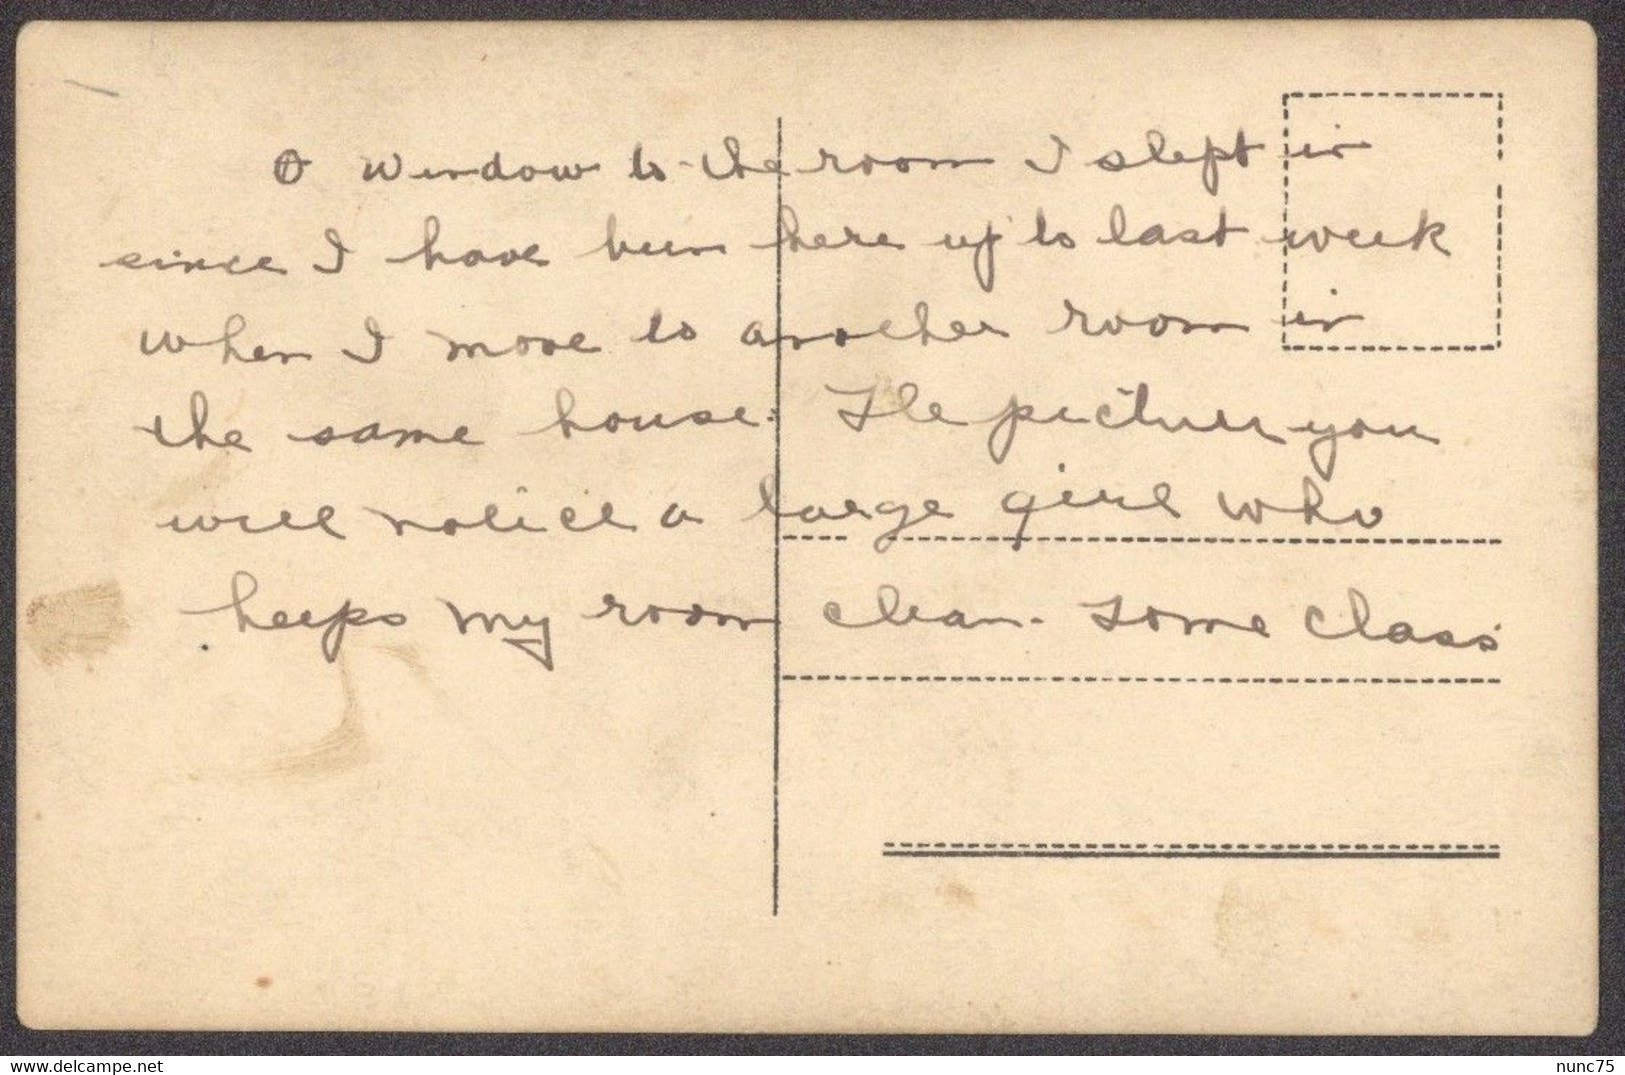 O window to the room I slept in
since I have been here up to last week
when I move to another room in
the same house. The picture you
will notice a large girl who
keeps my room clean. Some class
delcampe.net
nunc75